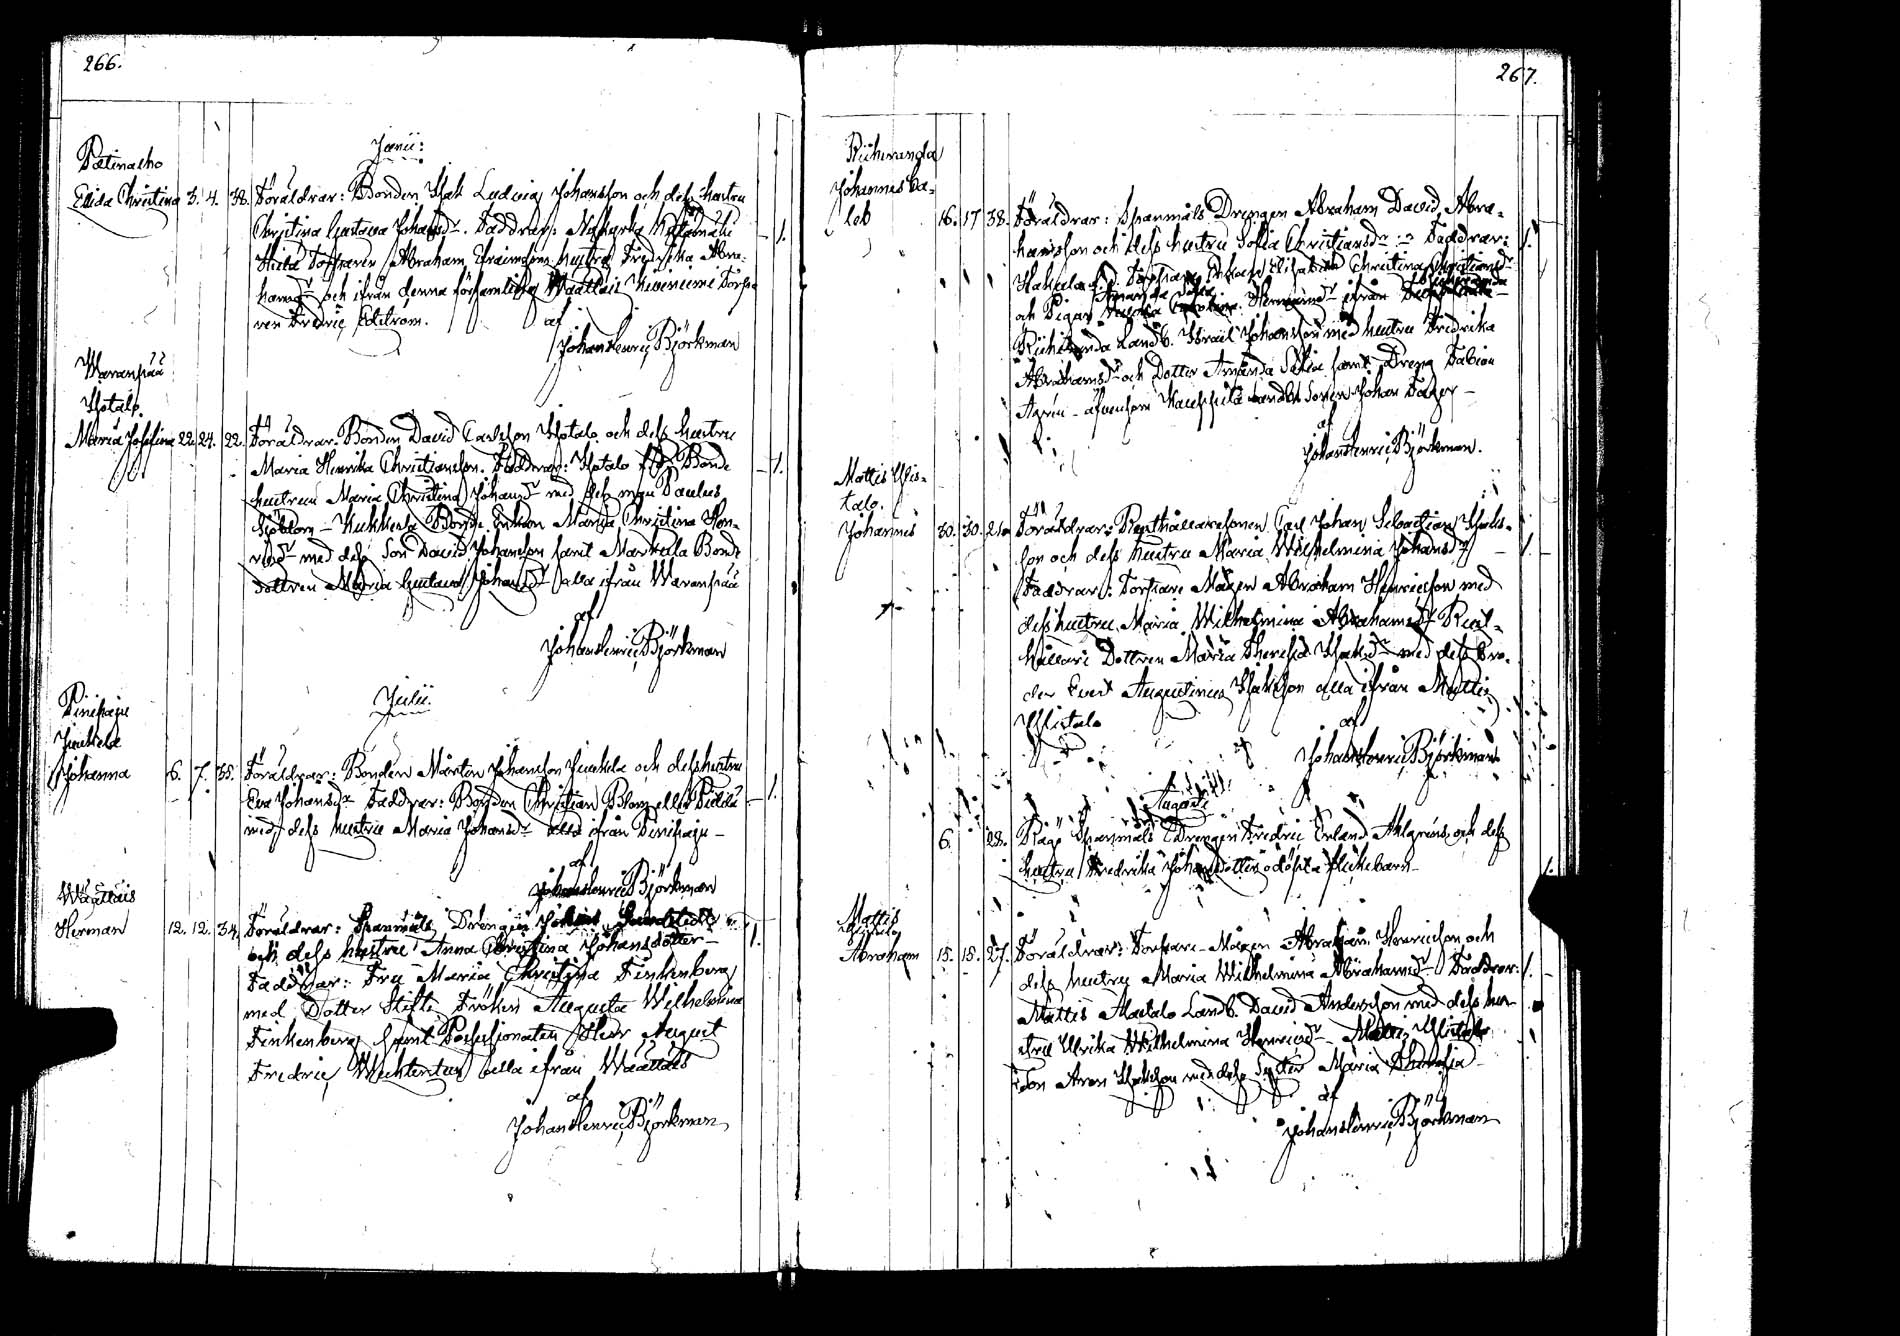 266.
Junii:
Patinaeho
Elida Christina 3. 4. 38. Föräldrar: Bonden Isak Ludvig Johansson och dess hustru
Christina Gustava Johansdr. Faddrar:
Abraham Efraimsons hustru Fredrika Abra-
hamsdr och ifrån denna församling Waattais Kiviniemi Torpa-
ren Fredric Edström.
af
Johan Henric Björkman
Waranpää
Isotalo
Maria Josefina 22. 24. 22. Föräldrar. Bonden David Carlsson Isotalo och dess hustru
Maria Henrika Christiansson. Faddrar: Isotalo Bonde
hustrun Maria Christina Johansdr med dess man Paulus
Sjöblom - Kukkola Bonde Enkan Maria Christina Hen-
ricsdr med dess Son David Johansson samt Markula Bonde
dottren Maria Gustava Johansdr alla ifrån Waranpää
af
Johan Henric Björkman
Julii.
Pinipaju
Junkola
Johanna 6. 7. 35. Föräldrar: Bonden Mårten Johansson Junkola och dess hustru
Eva Johansdr Faddrar: Bonden Christian Blom eller Pietilä
med dess hustru Maria Johansdr alla ifrån Pinipaju -
af
Johan Henric Björkman
Waattais
Herman 12. 12. 34. Föräldrar: Spanmåls Drengen
och dess hustru Anna Christina Johansdotter -
Faddrar: Fru Maria Christina Finkenberg
med Dotter Stifts Fröken Augusta Wilhelmina
Finkenberg samt Possessionaten Herr August
Fredric Wechterstern alla ifrån Waattais
af
Johan Henric Björkman
267.
Riihiranda
Johannes Ca-
leb 16. 17 38. Föräldrar: Spanmåls Drengen Abraham David Abra-
hamsson och dess hustru Sofia Christiansdr Faddrar:
Hakula Enkan Elisabeth Christina Christiansdr
och Pigan Amanda Sofia Hermansdr ifrån
Riihiranda Landb. Israel Johansson med hustru Fredrika
Abrahamsdr och Dotter Amanda Sofia samt Dreng Fabian
Agrén - äfvensom Kauppila Landb. Sonen Johan Fager -
af
Johan Henric Björkman.
Mattis Ylis-
talo.
Johannes 30. 30. Föräldrar: Rusthållaresonen Carl Johan Sebastian Isaks-
son och dess hustru Maria Wilhelmina Johansdr
Faddrar: Torpare Mågen Abraham Henricsson med
dess hustru Maria Wilhelmina Abrahamsdr Rust-
hållare Dottren Maria Theresia Isaksdr med dess Bro-
der Evert Augustinus Isaksson alla ifrån Mattis
Ylistalo
af
Johan Henric Björkman
Augusti
6. 28. Spanmåls Drengen Fredric Erland Ahlgréns och dess
hustru Fredrika Johansdotters odöpta flickebarn
Mattis
Ylistalo
Abraham 15. 15. 27. Föräldrar: Torpare-Mågen Abraham Henricsson och
dess hustru Maria Wilhelmina Abrahamsdr Faddrar:
Mattis Alastalo Landb. David Andersson med dess hu-
stru Ulrika Wilhelmina Henricsdr Mattis Ylistalo
Son Aron Isaksson med dess Syster Maria Theresia
af
Johan Henric Björkman